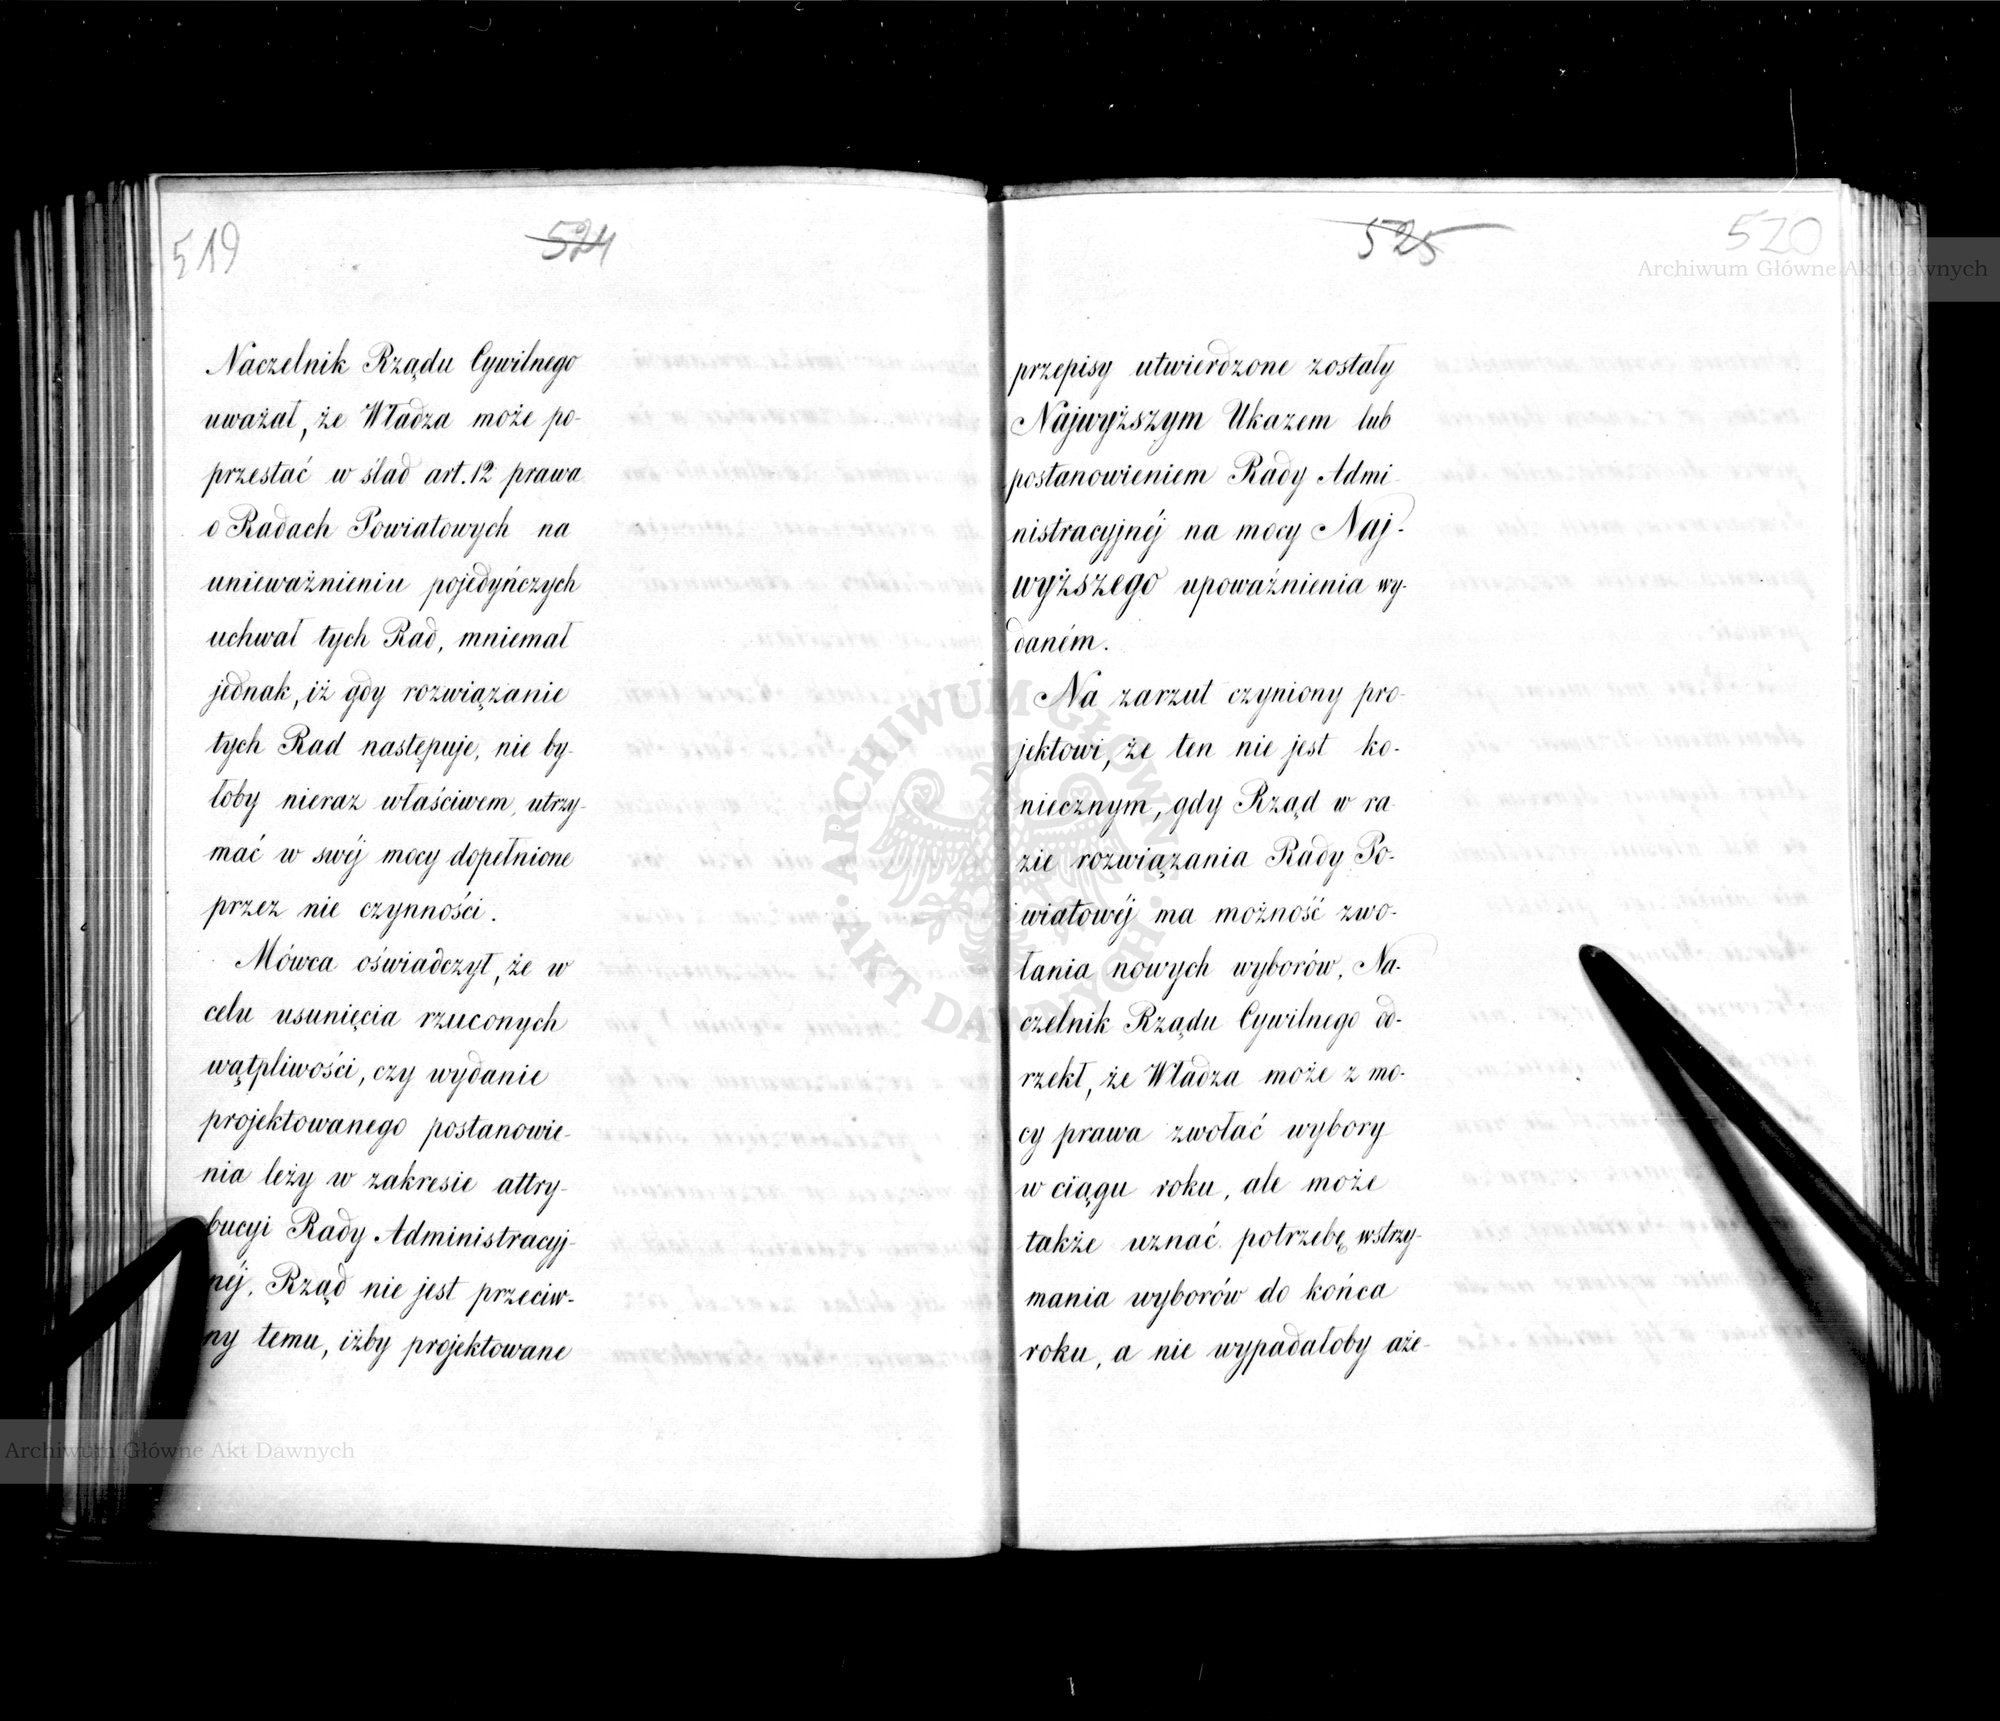 519
524
Naczelnik Rządu Cywilnego
uważał, że Władza może po-
przestać w ślad art. 12 prawa
o Radach Powiatowych na
unieważnieniu pojedyńczych
uchwał tych Rad, mniemał
jednak, iż gdy rozwiązanie
tych Rad następuje, nie by-
łoby nieraz właściwem, utrzy-
mać w swéj mocy dopełnione
przez nie czynności.
Mówca oświadczył, że w
celu usunięcia rzuconych
wątpliwości, czy wydanie
projektowanego postanowie-
nia leży w zakresie attry-
bucyi Rady Administracyj-
néj, Rząd nie jest przeciw-
ny temu, iżby projektowane
Archiwum Główne Akt Dawnych
525
520
Archiwum Główne Akt Dawnych
przepisy utwierdzone zostały
Najwyższym Ukazem lub
postanowieniem Rady Admi-
nistracyjnéj na mocy Naj-
wyższego upoważnienia wy-
daném.
Na zarzut czyniony pro-
jektowi, że ten nie jest ko-
niecznym, gdy Rząd w ra-
zie rozwiązania Rady Po-
wiatowéj ma możność zwo-
łania nowych wyborów, Na-
czelnik Rządu Cywilnego od-
rzekł, że Władza może z mo-
cy prawa zwołać wybory
w ciągu roku, ale może
także uznać potrzebę wstrzy-
mania wyborów do końca
roku, a nie wypadałoby aże-
ARCHIWUM GŁÓWNE
AKT DAWNYCH